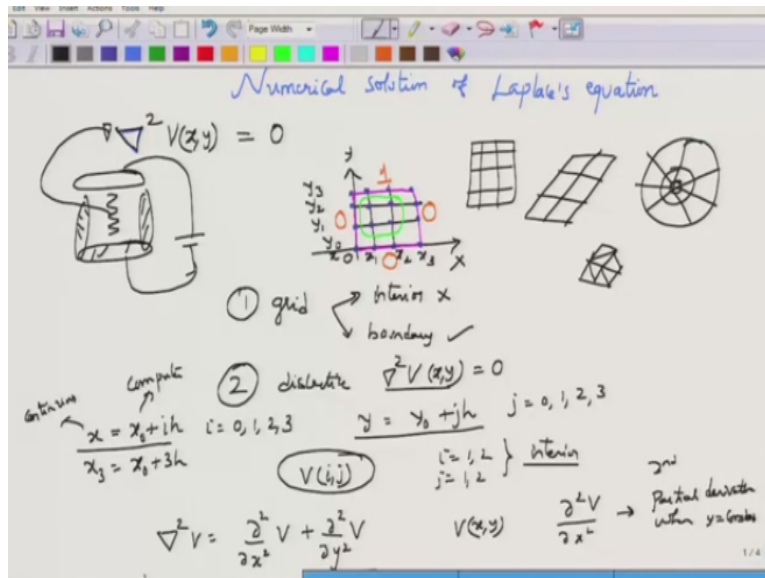 Edit View Insert Actions Tools Help
Page Width
Numerical solution of Laplace's equation
∇² V(x,y) = 0
y
1
y₃
y₂
y₁
y₀
0
0
x₀
x₁
x₂
x₃
0
X
① grid
interior x
boundary ✓
② discretize ∇²V(x,y) = 0
continuous
compute
x = x₀+ih i = 0, 1, 2, 3
y = y₀ + jh j = 0, 1, 2, 3
x₃ = x₀+3h
V(i,j)
i = 1, 2
j = 1, 2
} interior
∇²V = ∂²/∂x² V + ∂²/∂y² V
V(x,y)
∂²V/∂x² →
2nd
Partial derivative
when y=
1/4